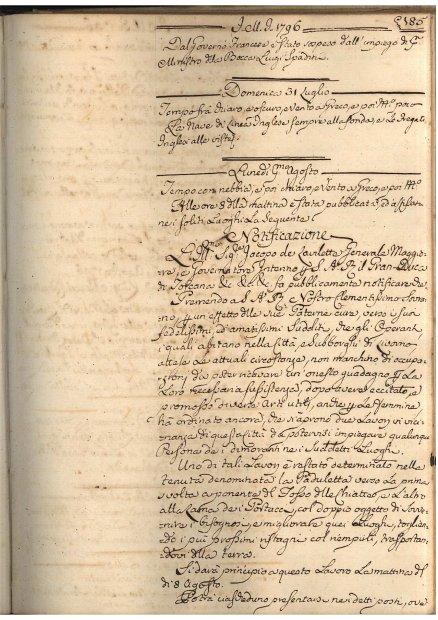 J.M.J. 1796 185
Dal Governo Francese è stato sospeso dall'impiego di
Ministro della Bocca Luigi Spadini
Domenica 31 Luglio
Tempo frà chiaro, e oscuro, e Vento a Greco, e poi
La Nave di Linea Inglese sempre alla fonda, e Le Fregate
Inglesi alle viste
Lunedì Agosto
Tempo con nebbia, e poi chiaro, e Vento a Greco, e poi
Alle ore 8 della mattina è stata pubblicata, ed
nei soliti Luoghi La seguente
Notificazione
Jacopo de Lavillette Generale Maggio
re, e Governatore Interino S. A. R. il Gran-Duca
di Toscana fa pubblicamente notificare che
Premendo a S. A. R. Nostro Clementissimo Sovra
no, un effetto delle sue Paterne cure, verso i suoi
fedelissimi, ed amatissimi Sudditi, che gli Operanti
i quali abitano nella Città, e Subborghi di Livorno
attese Le attuali circostanze, non manchino di occupa
zioni, da poter ricavare un'onesto guadagno
Loro necessaria sussistenza, dopo avere eccitato, e
promosso diverse Arti utili, anche Le Femmine
hà ordinato ancora, che si aprono due Lavori in vici
nanza di questa Città da potervisi impiegare qualunque
Persona dei dimoranti nei Suddetti Luoghi.
Uno di tali Lavori è restato determinato nella
tenuta denominata La Paduletta verso La prima
svolta a ponente del Fosso delle Chiatte, e L'altro
alla dei col doppio oggetto di sovve
nire i bisognosi, e migliorare quei Luoghi, toglien
do i più prossimi ristagni col riempirli, trasportan
dovi della terra.
Si darà principio a questo Lavoro La mattina del
dì 8 Agosto.
Potrà ciascheduno presentarsi nei detti posti, ove